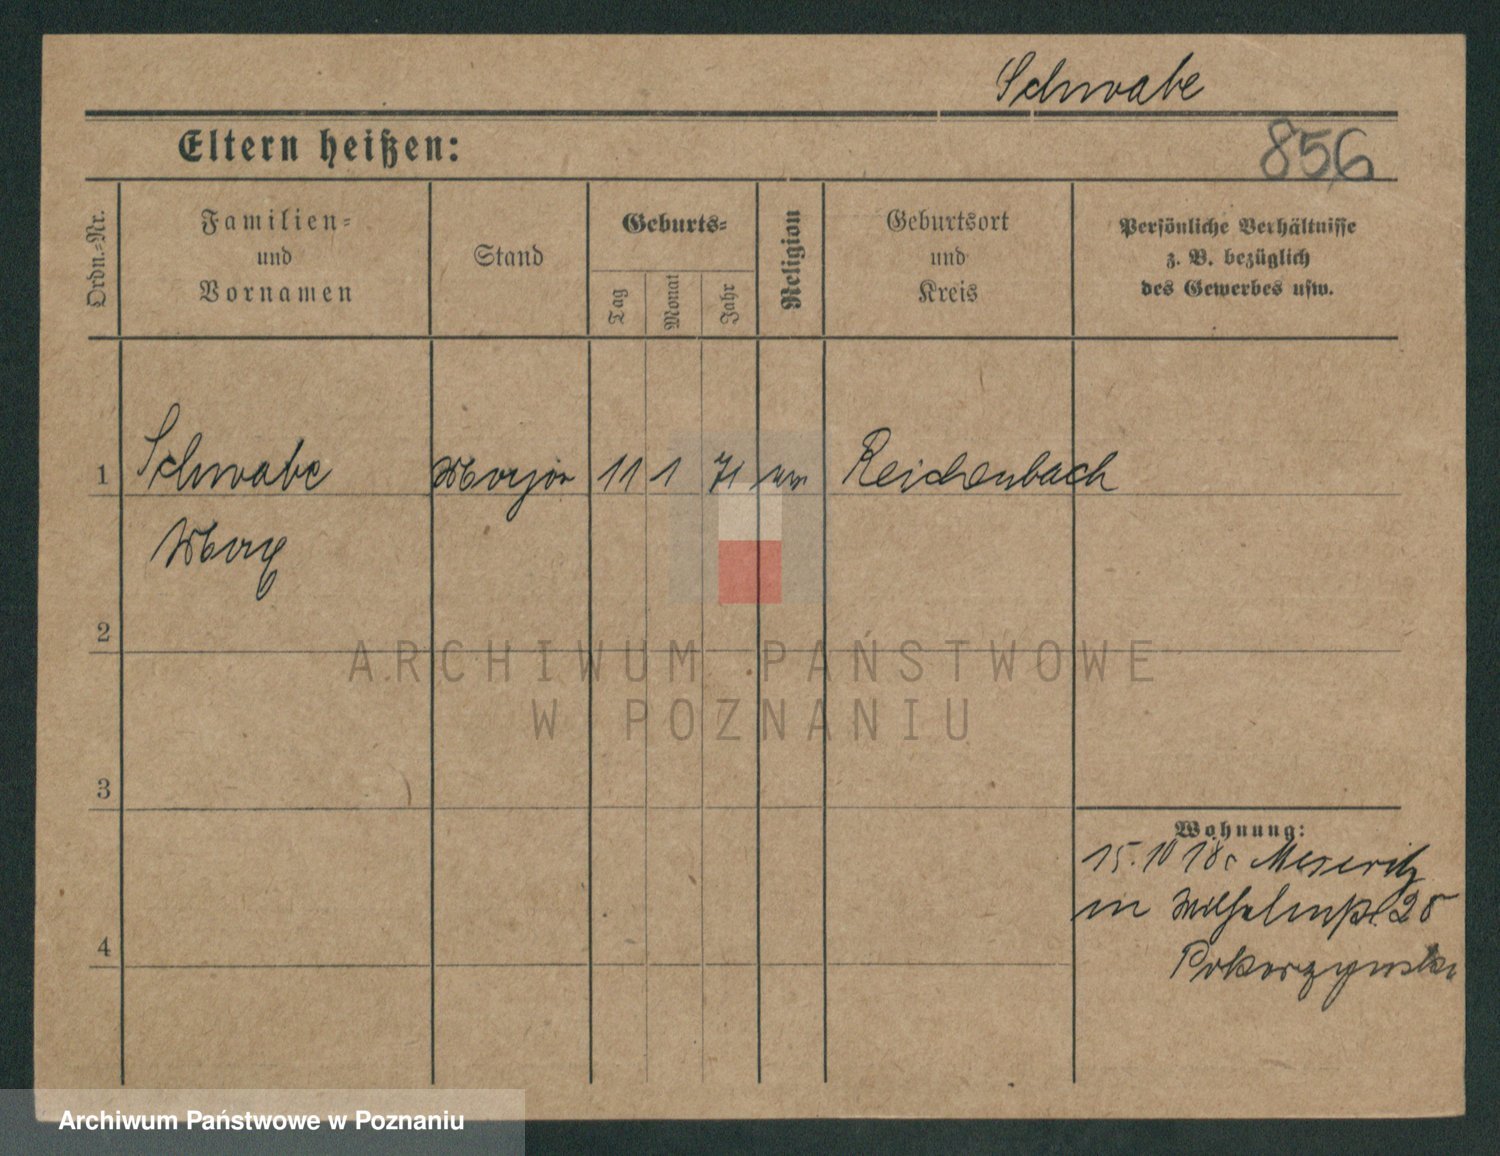 Schwabe
Eltern heißen:
856
Ordn.-Nr.
Familien-
und
Vornamen
Stand
Geburts-
Tag
Monat
Jahr
Religion
Geburtsort
und
Kreis
Persönliche Verhältnisse
z. B. bezüglich
des Gewerbes usw.
1 Schwabe Major 11 1 71 Reichenbach
Max
2
3
4
Wohnung:
15. 10 18 Meseritz
in Wilhelmspl. 28
Pokorzynski
ARCHIWUM PAŃSTWOWE
W POZNANIU
Archiwum Państwowe w Poznaniu